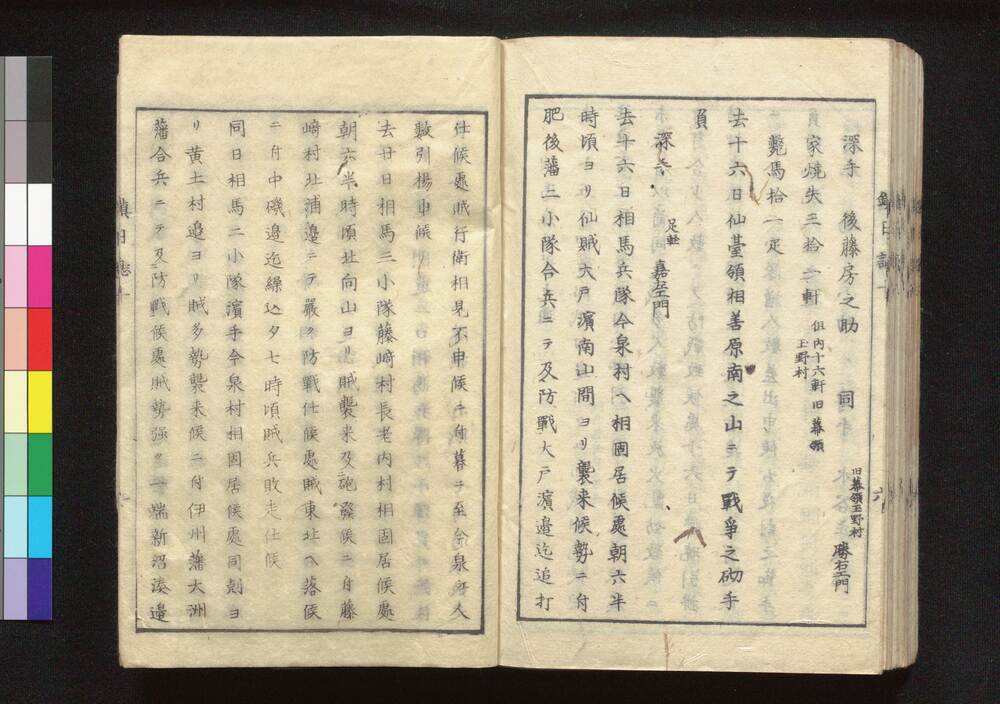 深手 後藤房之助 同
旧幕領玉野村 勝右エ門
家焼失三拾二軒 但内十六軒旧幕領
玉野村
斃馬拾一疋
去十六日仙臺領相善原南之山ニテ戰爭之砌手
負
深手 足軽 嘉左エ門
去廿六日相馬兵隊今泉村ヘ相固居候處朝六半
時頃ヨリ仙賊大戸濱南山間ヨリ襲来候勢ニ付
肥後藩二小隊合兵ニテ及防戰大戸濱邉迄追打
仕候處賊行衛相見不申候ニ付暮ニ至今泉村人
數引揚申候
去廿日相馬三小隊藤﨑村長老内村相固居候處
朝六半時頃北向山ヨリ賊襲来及砲發候ニ付藤
﨑村北浦邉ニテ嚴ク防戰仕候處賊東北ヘ落候
ニ付中磯邉迄繰込夕七時頃賊兵敗走仕候
同日相馬二小隊濱手今泉村相固居候處同刻ヨ
リ黄土村邉ヨリ賊多勢襲来候ニ付伊州藩大洲
藩合兵ニテ及防戰候處賊勢强ク一端新沼湊邉